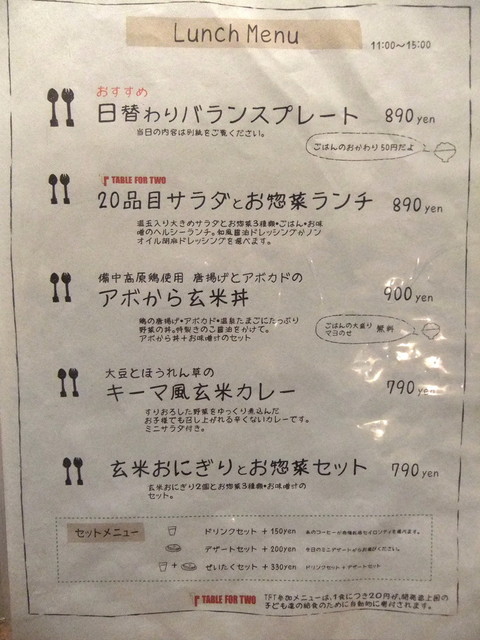 Lunch Menu
11:00～15:00
おすすめ
日替わりバランスプレート 890yen
当日の内容は別紙をご覧ください。
ごはんのおかわり50円だよ
TABLE FOR TWO
20品目サラダとお惣菜ランチ 890yen
温玉入り大きめサラダとお惣菜3種類・ごはん・お味
噌のヘルシーランチ。和風醤油ドレッシングかノン
オイル胡麻ドレッシングを選べます。
備中高原鶏使用 唐揚げとアボカドの
アボから玄米丼 900yen
鶏の唐揚げ・アボカド・温泉たまごにたっぷり
野菜の丼。特製きのこ醤油をかけて。
アボから丼＋お味噌汁のセット
ごはんの大盛り
マヨのせ 無料
大豆とほうれん草の
キーマ風玄米カレー 790yen
すりおろした野菜をゆっくり煮込んだ
お子様でも召し上がれる辛くないカレーです。
ミニサラダ付き。
玄米おにぎりとお惣菜セット 790yen
玄米おにぎり2個とお惣菜3種類・お味噌汁の
セット。
セットメニュー
ドリンクセット ＋150yen
デザートセット ＋200yen 今日のミニデザートからお選びください。
＋ ぜいたくセット ＋330yen ドリンクセット＋デザートセット
TABLE FOR TWO TFT参加メニューは、1食につき20円が、開発途上国の
子ども達の給食のために自動的に寄付されます。